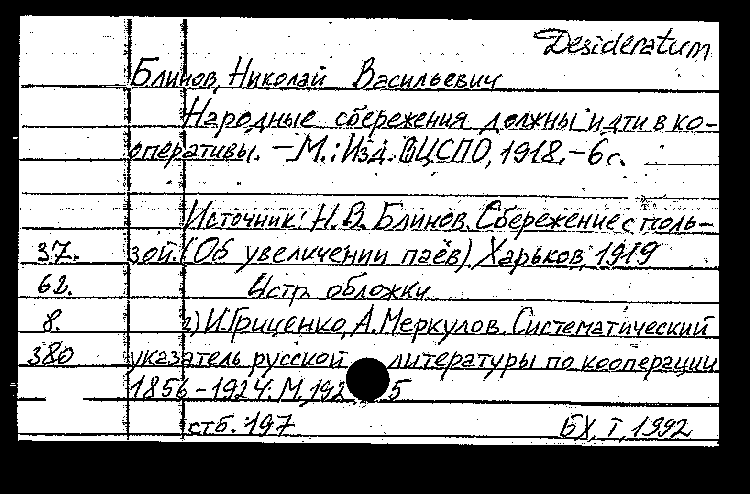 Desideratum
Блинов, Николай Васильевич
Народные сбережения должны идти в ко-
оперативы. – М.: Изд. ВЦСПО, 1918. – 6 с.
Источник: Н.В. Блинов. Сбережение с поль-
37. зой. (Об увеличении паёв). Харьков, 1919
62. 4 стр. обложки
8. 2) И. Гриценко, А. Меркулов. Систематический
380 указатель русской литературы по кооперации
1856–1924. М., 192 5
стб. 197 БХ, I, 1992